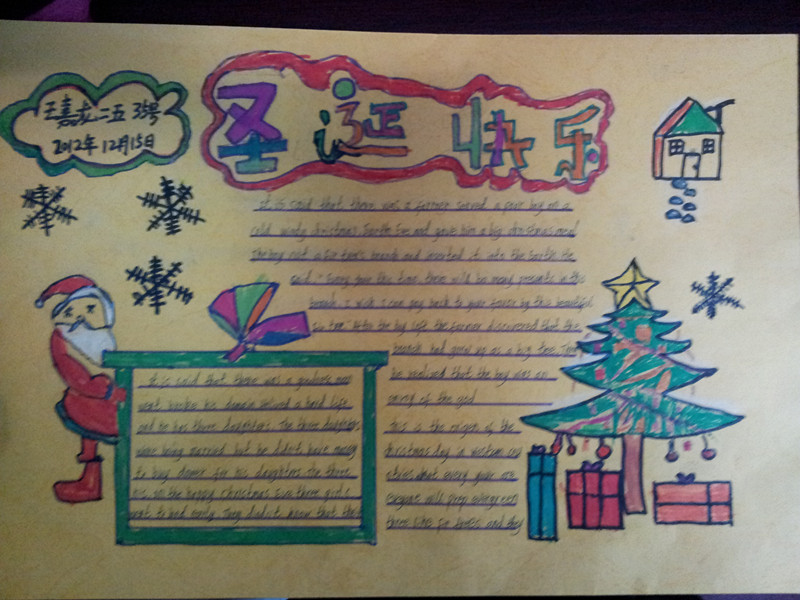 王嘉龙 二五 35号
2012年12月15日
圣诞快乐
It is said that there was a farmer served a poor boy on a
cold windy christmas Earth Eve and gave him a big christmas meal
The boy cut a fir tree's branch and inserted it into the Earth. He
said, "Every year this time, there will be many presents in this
branch. I wish I can pay back to your favour by this beautiful
fir tree." After the boy left the farmer discovered that the
branch had grew up as a big tree. Then
he realized that the boy was an
of the god
This is the origin of the
christmas day in western
every year
everyone will prep evergreen
trees like and they
It is said that there was a man
went broke his lived a hard life
and he has three daughters. The three daughters
were being married but he didn't have money
to buy for his daughters. The three
on the happy Christmas Eve three girls
went to bed early. They didn't know that their